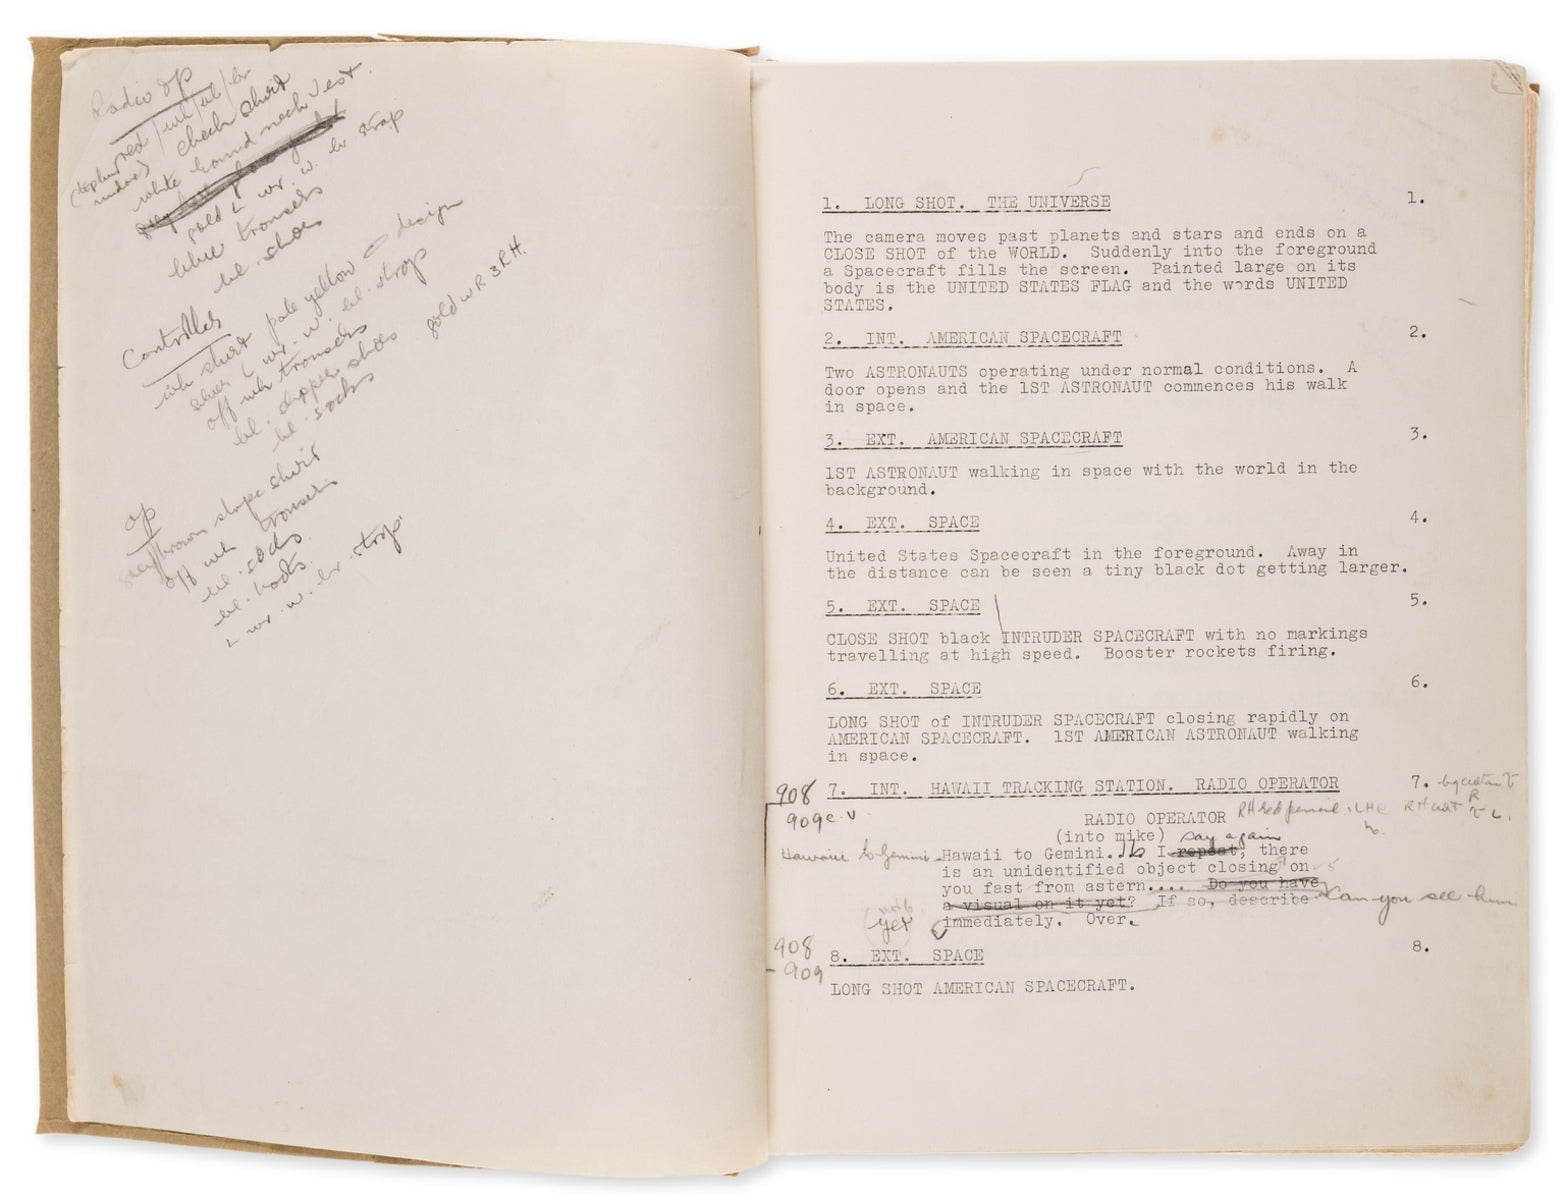 Radio Op
red/wh/bl/br
check shirt
white round neck vest
gold L wr. w. br strap
blue trousers
bl. shoes
Controller
wh shirt pale yellow design
silver L wr. w. bl. strap
off wh trousers
bl. shoes
bl. socks
gold WR 3 RH.
Op
brown stripe shirt
off wh trousers
bl. socks
bl. boots
L wr. w. br. strap.
1. LONG SHOT. THE UNIVERSE 1.
The camera moves past planets and stars and ends on a
CLOSE SHOT of the WORLD. Suddenly into the foreground
a Spacecraft fills the screen. Painted large on its
body is the UNITED STATES FLAG and the words UNITED
STATES.
2. INT. AMERICAN SPACECRAFT 2.
Two ASTRONAUTS operating under normal conditions. A
door opens and the 1ST ASTRONAUT commences his walk
in space.
3. EXT. AMERICAN SPACECRAFT 3.
1ST ASTRONAUT walking in space with the world in the
background.
4. EXT. SPACE 4.
United States Spacecraft in the foreground. Away in
the distance can be seen a tiny black dot getting larger.
5. EXT. SPACE 5.
CLOSE SHOT black INTRUDER SPACECRAFT with no markings
travelling at high speed. Booster rockets firing.
6. EXT. SPACE 6.
LONG SHOT of INTRUDER SPACECRAFT closing rapidly on
AMERICAN SPACECRAFT. 1ST AMERICAN ASTRONAUT walking
in space.
908 7. INT. HAWAII TRACKING STATION. RADIO OPERATOR 7.
909
RADIO OPERATOR RH red pencil
(into mike) say again
Hawaii to Gemini Hawaii to Gemini.. I repeat, there
is an unidentified object closing on
you fast from astern.... Do you have
a visual on it yet? If so, describe Can you see him
yet immediately. Over.
908
909 8. EXT. SPACE 8.
LONG SHOT AMERICAN SPACECRAFT.